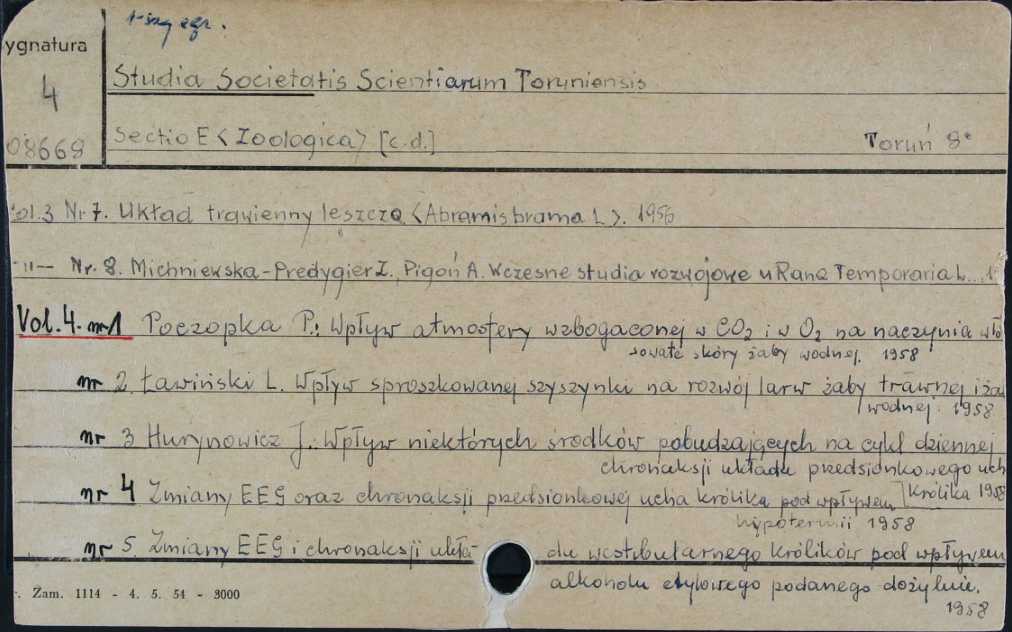 1-szy egz.
ygnatura
4
08668
Studia Societatis Scientiarum Toruniensis
Sectio E <Zoologica> [c.d.]
Toruń 8°
ol.3 Nr 7. Układ trawienny leszcza <Abramis brama L>. 1956
-"- Nr. 8. Michniewska-Predygier I., Pigoń A. Wczesne studia rozwojowe u Rana Temporaria L.
Vol. 4. nr 1 Poczopka P.: Wpływ atmosfery wzbogaconej w CO2 i w O2 na naczynia wło
sowate skóry żaby wodnej. 1958
nr 2. Ławiński L. Wpływ sproszkowanej szyszynki na rozwój larw żaby trawnej i ża
wodnej. 1958
nr 3 Hurynowicz J.: Wpływ niektórych środków pobudzających na cykl dziennej
chronaksji układu przedsionkowego uch
królika 1958
nr 4 Zmiany EEG oraz chronaksji przedsionkowej ucha królika pod wpływem
hypotermii 1958
nr 5 Zmiany EEG i chronaksji ukła- du westibularnego królików pod wpływem
alkoholu etylowego podanego dożylnie.
1958
. Zam. 1114 - 4. 5. 54 - 3000